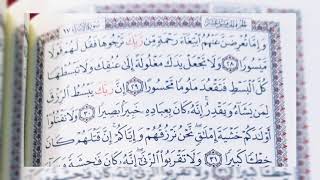 وَإِمَّا تُعْرِضَنَّ عَنْهُمُ ابْتِغَاءَ رَحْمَةٍ مِّن رَّبِّكَ تَرْجُوهَا فَقُل لَّهُمْ قَوْلًا
مَّيْسُورًا ٢٨ وَلَا تَجْعَلْ يَدَكَ مَغْلُولَةً إِلَىٰ عُنُقِكَ وَلَا تَبْسُطْهَا
كُلَّ الْبَسْطِ فَتَقْعُدَ مَلُومًا مَّحْسُورًا ٢٩ إِنَّ رَبَّكَ يَبْسُطُ الرِّزْقَ
لِمَن يَشَاءُ وَيَقْدِرُ إِنَّهُ كَانَ بِعِبَادِهِ خَبِيرًا بَصِيرًا ٣٠ وَلَا تَقْتُلُوا
أَوْلَادَكُمْ خَشْيَةَ إِمْلَاقٍ نَّحْنُ نَرْزُقُهُمْ وَإِيَّاكُمْ إِنَّ قَتْلَهُمْ كَانَ
خِطْئًا كَبِيرًا ٣١ وَلَا تَقْرَبُوا الزِّنَىٰ إِنَّهُ كَانَ فَاحِشَةً